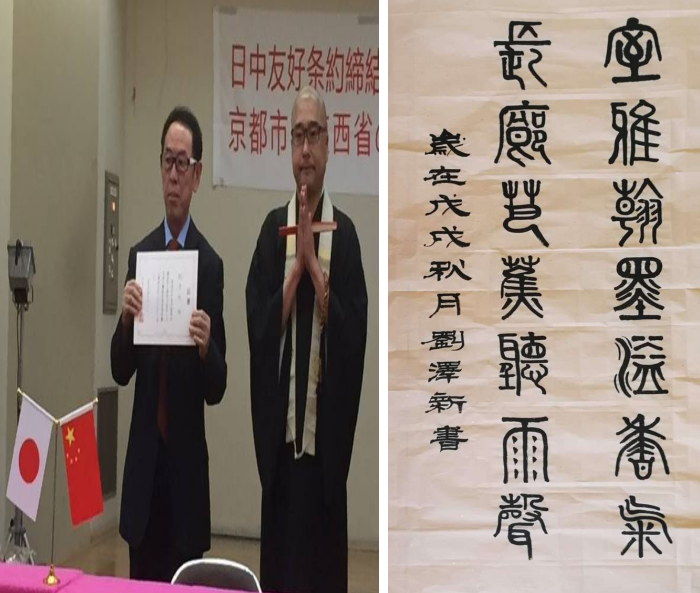 日中友好条約締結
京都市 西省
室雅翰墨溢香氣
長廊芭蕉聽雨聲
歲在戊戌秋月劉澤新書